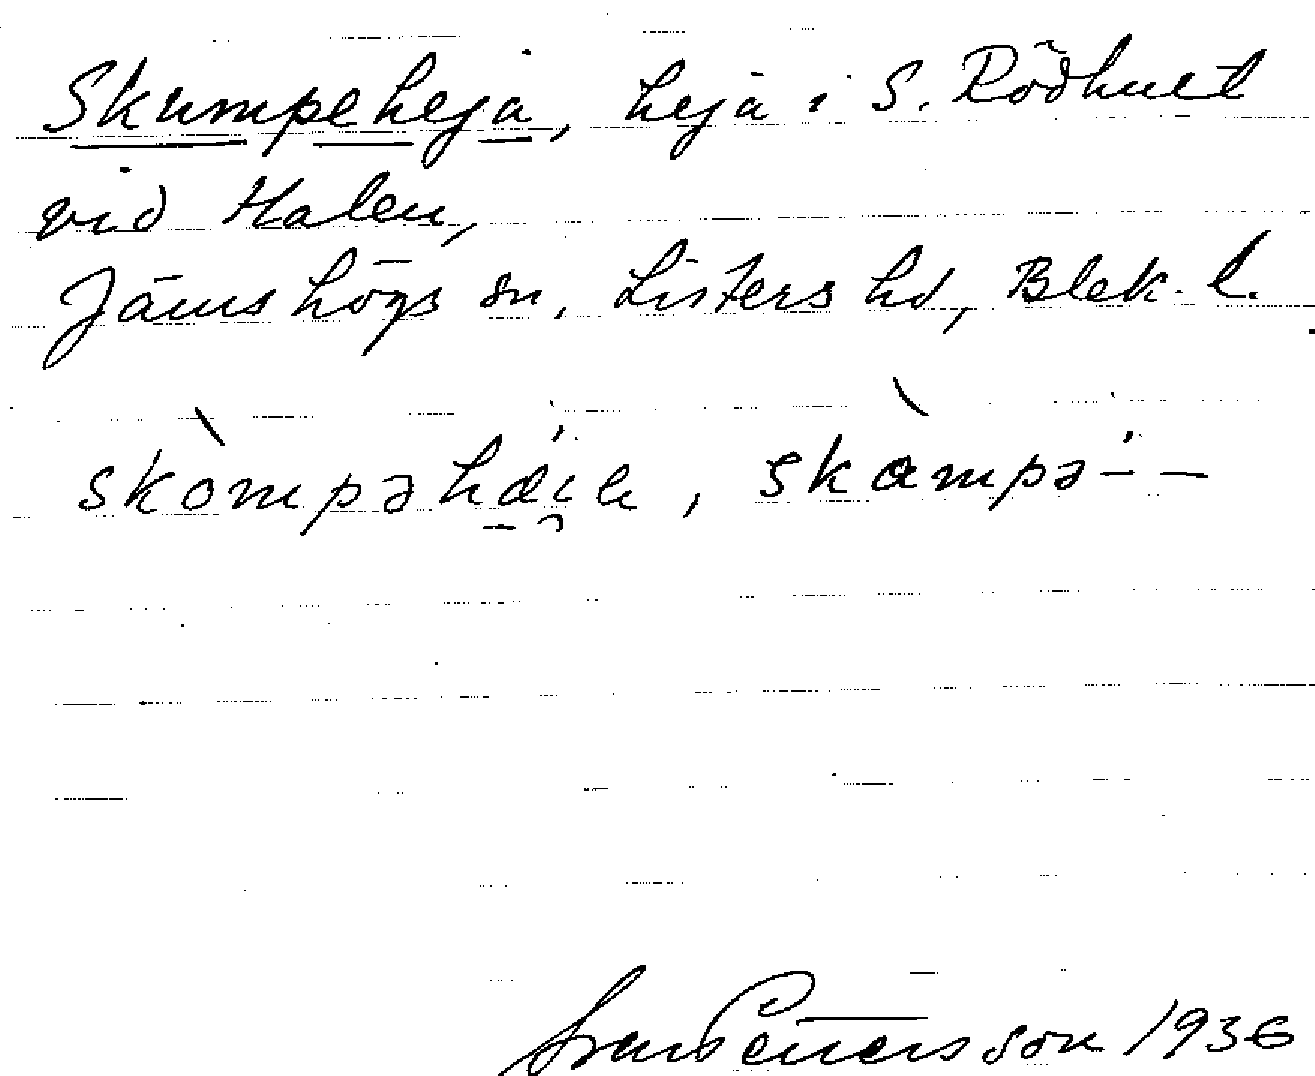 Skumpeheja, heja i S. Rödhult
vid Halen,
Jämshögs sn, Listers hd, Blek. l.
skòmpəhæ̀i̯a, skàmpə- –
Pettersson 1936